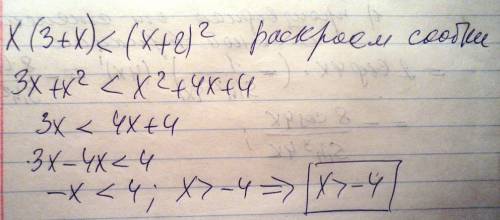 x(3+x)<(x+2)² раскроем скобки
3x+x²<x²+4x+4
3x<4x+4
3x-4x<4
-x<4; x>-4 => x>-4